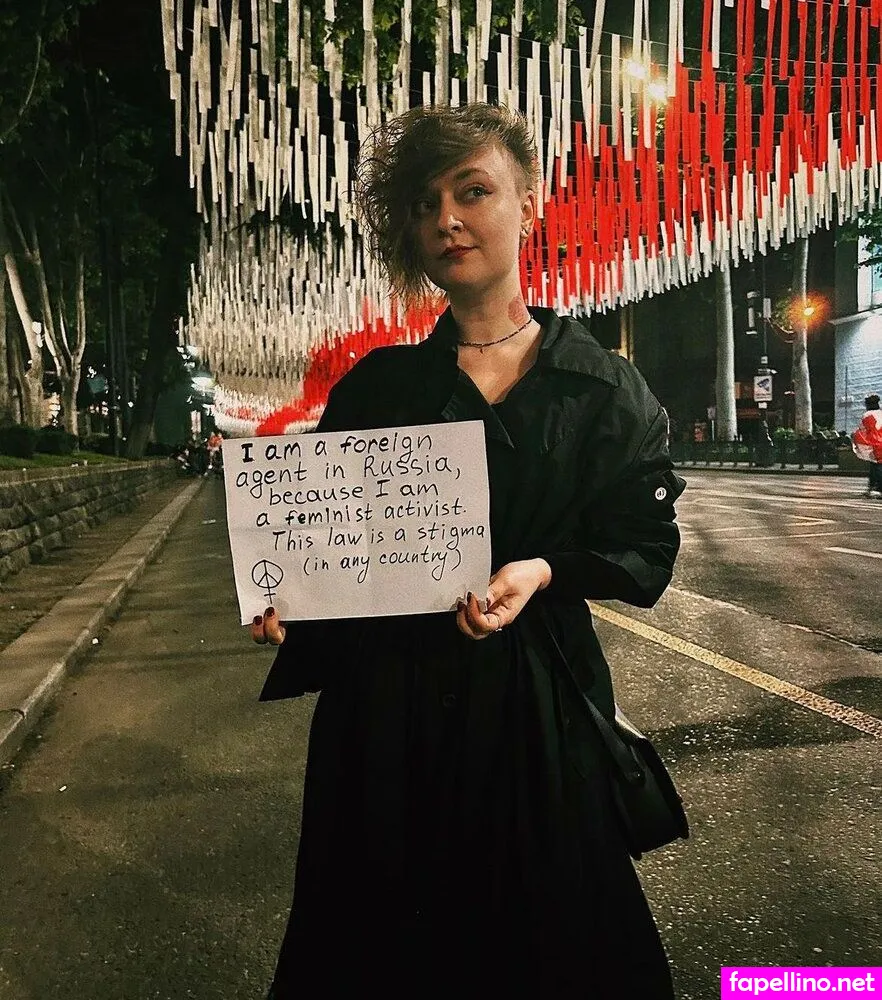 I am a foreign
agent in Russia,
because I am
a feminist activist.
This law is a stigma
(in any country)
fapellino.net